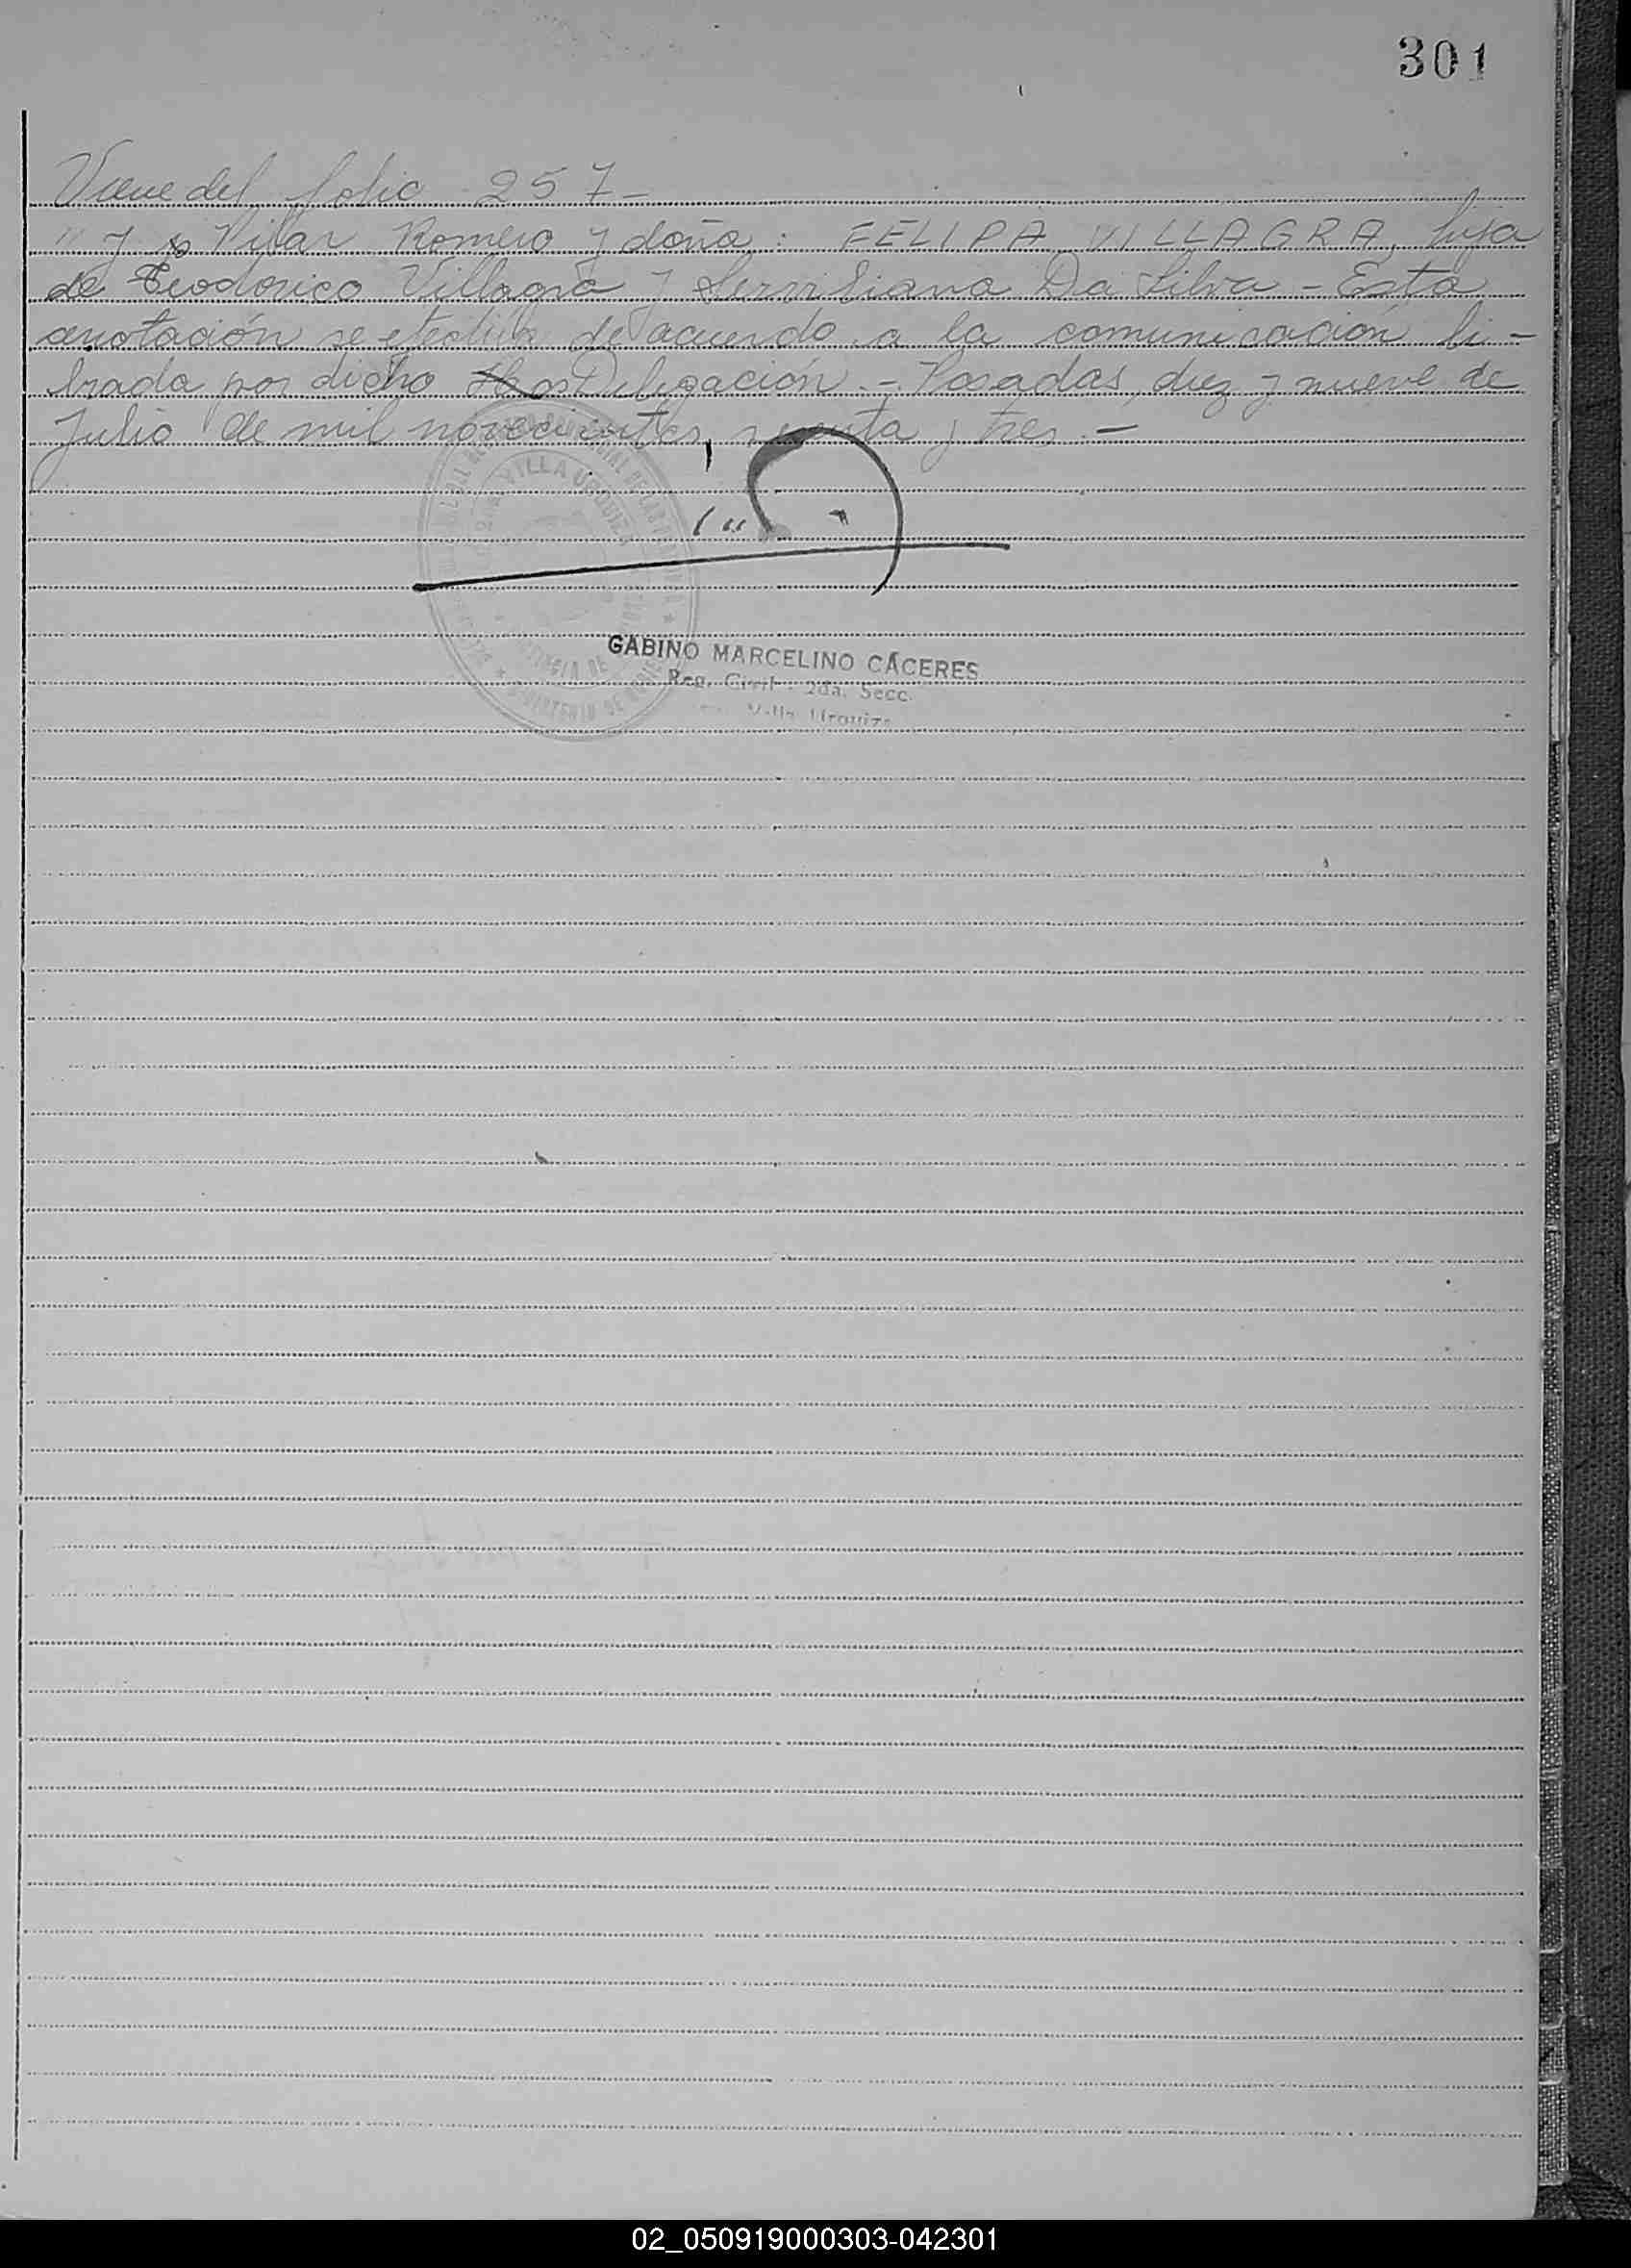 301
Viene del folio 257-
" y Pilar Romero y doña: FELIPA VILLAGRA, hija
de Teodorico Villagra y Serviliana Da Silva - Esta
anotación se efectúa de acuerdo a la comunicación li-
brada por dicho Delegación. - Posadas, diez y nueve de
Julio de mil novecientos y tres. -
VILLA URQUIZA
GABINO MARCELINO CÁCERES
Reg. Civil - 2da. Secc.
Villa Urquiza
02_050919000303-042301